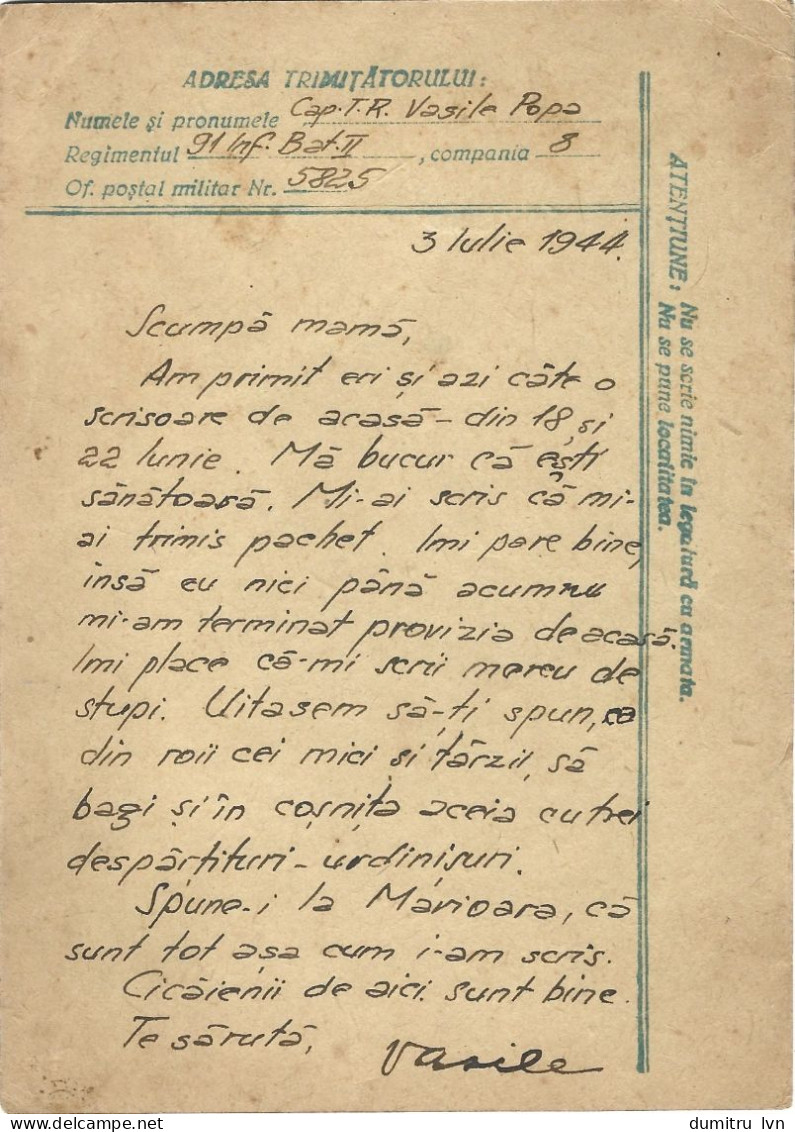 ADRESA TRIMIȚĂTORULUI:
Numele și pronumele Cap. T.R. Vasile Popa
Regimentul 91 Inf. Bat. II, compania 8
Of. poștal militar Nr. 5825
3 Iulie 1944.
Scumpă mamă,
Am primit eri și azi câte o
scrisoare de acasă - din 18 și
22 Iunie. Mă bucur că ești
sănătoasă. Mi-ai scris că mi-
ai trimis pachet. Imi pare bine,
însă eu nici până acum nu
mi-am terminat provizia de acasă.
Imi place că-mi scrii mereu de
stupi. Uitasem să-ți spun, ca
din roii cei mici și târzii, să
bagi și în coșnița aceia cu trei
despărțituri - urdinișuri.
Spune-i la Mărioara, că
sunt tot așa cum i-am scris.
Cicăienii de aici sunt bine.
Te sărută,
Vasile
ATENȚIUNE: Nu se scrie nimic în legatură cu armata.
Nu se pune localitatea.
dumitru_lvn